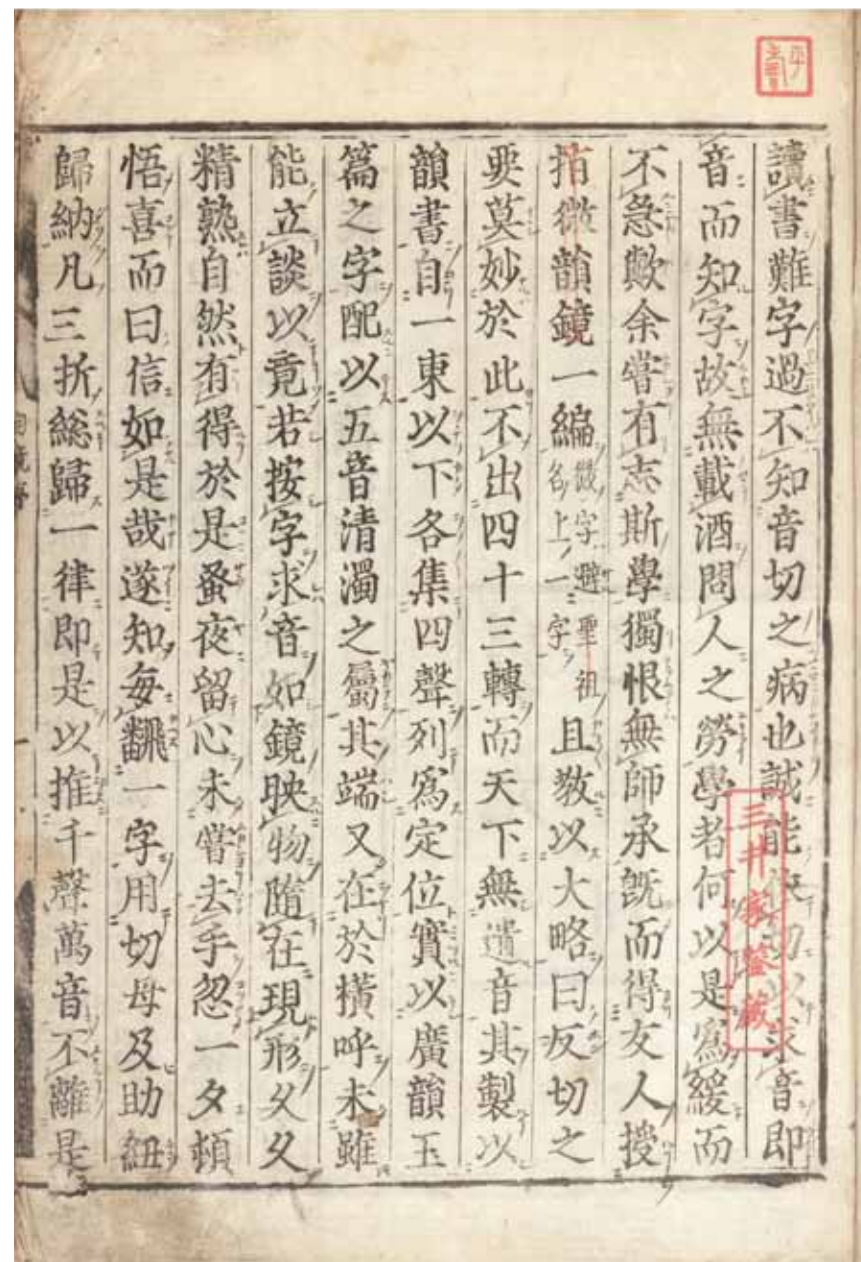 讀書難字過不知音切之病也誠能依切以求音即
音而知字故無載酒問人之勞學者何以是爲緩而
不急歟余嘗有志斯學獨恨無師承既而得友人授
指微韻鏡一編微字避聖祖名上一字且教以大略曰反切之
要莫妙於此不出四十三轉而天下無遺音其製以
韻書自一東以下各集四聲列爲定位實以廣韻玉
篇之字配以五音清濁之屬其端又在於橫呼未雖
能立談以竟若按字求音如鏡映物隨在現形久久
精熟自然有得於是蚤夜留心未嘗去手忽一夕頓
悟喜而曰信如是哉遂知每飜一字用切母及助紐
歸納凡三折総歸一律即是以推千聲萬音不離是
三井家鑒藏